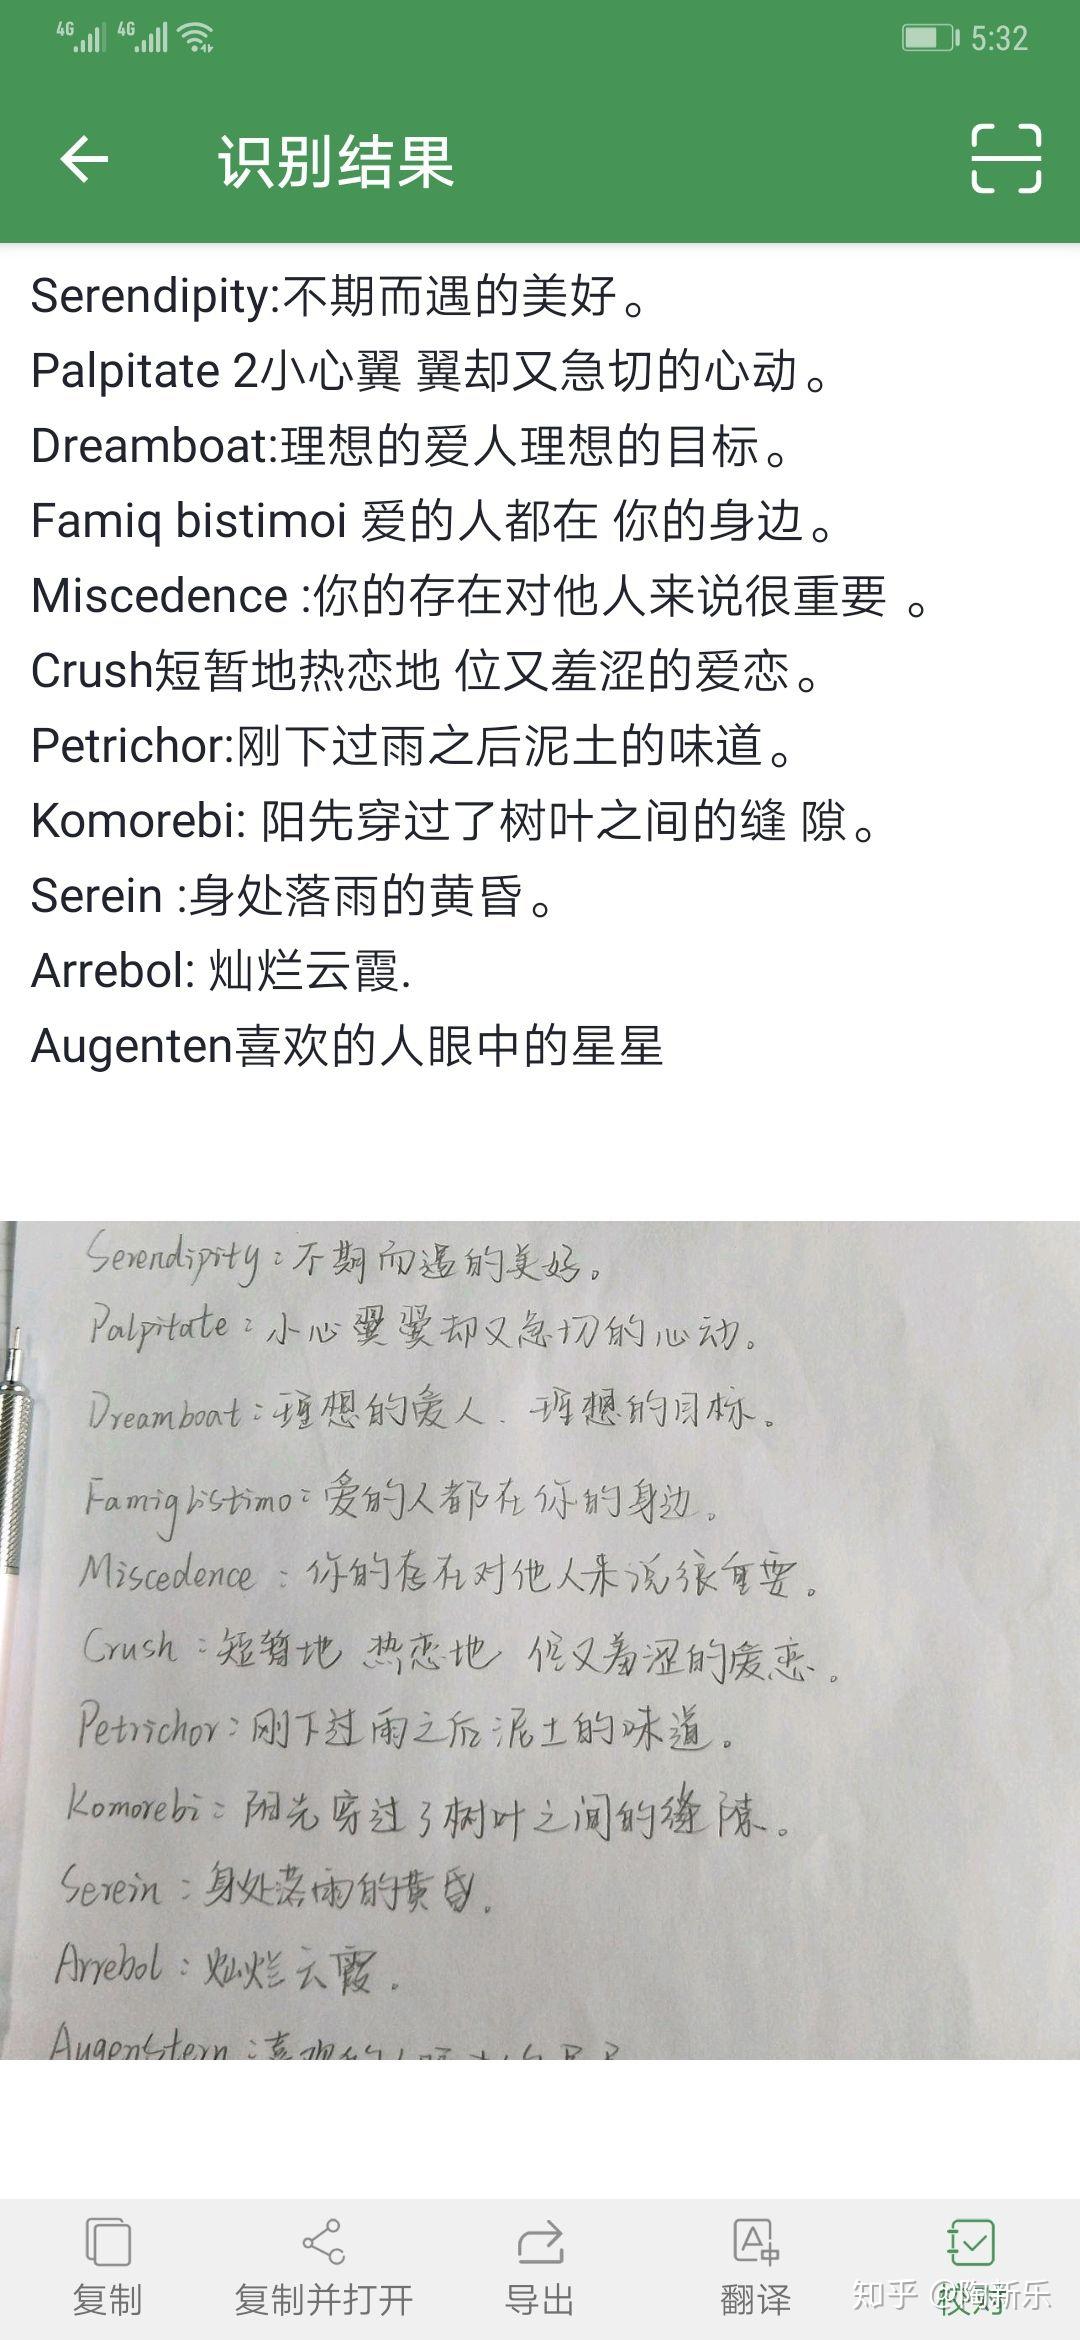 4G 4G 5:32
识别结果
Serendipity:不期而遇的美好。
Palpitate 2小心翼 翼却又急切的心动。
Dreamboat:理想的爱人理想的目标。
Famiq bistimoi 爱的人都在 你的身边。
Miscedence :你的存在对他人来说很重要 。
Crush短暂地热恋地 位又羞涩的爱恋。
Petrichor:刚下过雨之后泥土的味道。
Komorebi: 阳先穿过了树叶之间的缝 隙。
Serein :身处落雨的黄昏。
Arrebol: 灿烂云霞.
Augenten喜欢的人眼中的星星
Serendipity:不期而遇的美好。
Palpitate:小心翼翼却又急切的心动。
Dreamboat:理想的爱人.理想的目标。
Famiglistimo:爱的人都在你的身边。
Miscedence:你的存在对他人来说很重要。
Crush:短暂地 热恋地 但又羞涩的爱恋。
Petrichor:刚下过雨之后泥土的味道。
Komorebi:阳光穿过了树叶之间的缝隙。
Serein:身处落雨的黄昏.
Arrebol:灿烂云霞.
Augenstern:喜欢的人
复制 复制并打开 导出 翻译 校对
知乎 @陶新乐